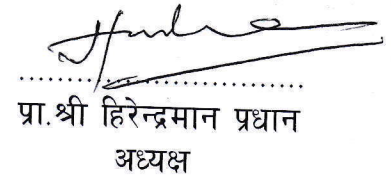 प्रा.श्री हिरेन्द्रमान प्रधान
अध्यक्ष